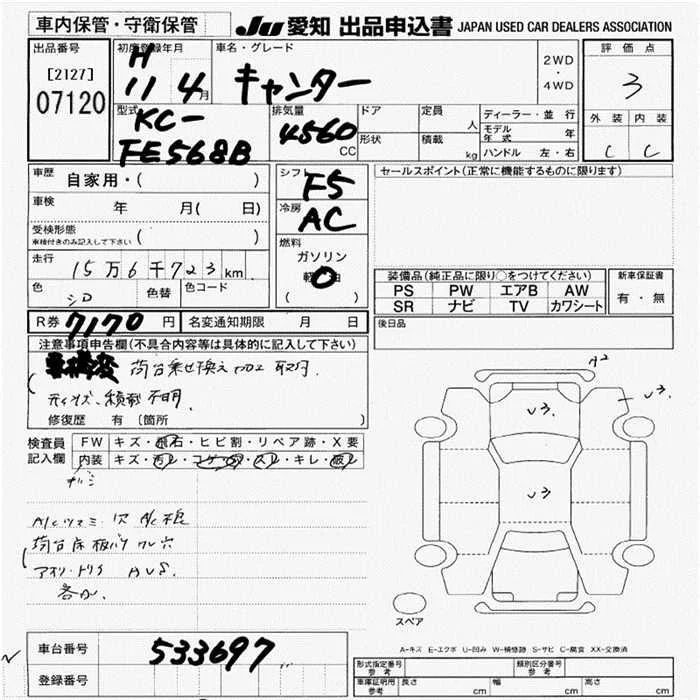 車内保管・守衛保管
JU 愛知 出品申込書 JAPAN USED CAR DEALERS ASSOCIATION
出品番号
[2127]
07120
初度登録年月
H
11 4月
車名・グレード
キャンター
2WD
・
4WD
評価点
3
外装 内装
C C
型式
KC-
FE568B
排気量
4560
CC
ドア
形状
定員
人
積載
kg
ディーラー・並行
モデル年式 年
ハンドル 左・右
車歴
自家用・( )
車検
年 月( 日)
受検形態
車検付きのみ記入して下さい ( )
走行
15万6千723km
色
シロ
色替
色コード
シフト
F5
冷房
AC
燃料
ガソリン
軽油
( )
セールスポイント(正常に機能するものに限ります)
装備品(純正品に限り○をつけてください)
PS PW エアB AW
SR ナビ TV カワシート
新車保証書
有・無
後日品
R券 7170 円
名変通知期限 月 日
注意事項申告欄(不具合内容等は具体的に記入して下さい)
荷台乗せ換え
不明
修復歴 有(箇所 )
検査員
記入欄
FW キズ・飛石・ヒビ割・リペア跡・X要
内装 キズ・汚レ・コゲ・穴・スレ・キレ・破レ
A/Cツマミ
荷台床板
各カ
A2
U3.
U3.
U3
スペア
A-キズ E-エクボ U-凹み W-補修跡 S-サビ C-腐食 XX-交換済
車台番号
533697
登録番号
形式指定番号
参考
類別区分番号
参考
車庫証明用
参考
長さ cm 幅 cm 高さ cm